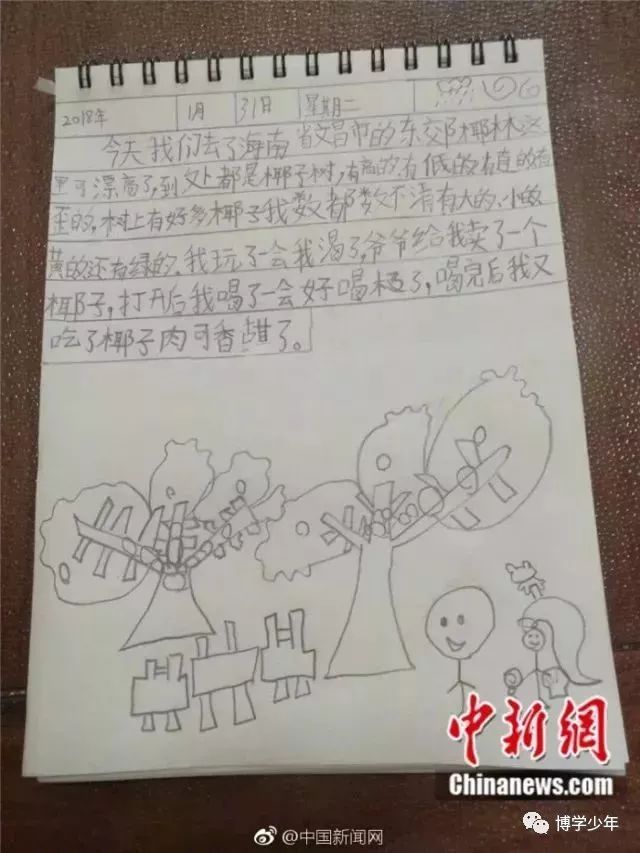 2018年 1月 31日 星期二
今天我们去了海南省文昌市的东郊椰林这
里可漂亮了,到处都是椰子树,有高的,有低的有直的有
歪的,树上有好多椰子我数都数不清有大的、小的
黄的还有绿的.我玩了一会我渴了,爷爷给我卖了一个
椰子,打开后我喝了一会好喝极了,喝完后我又
吃了椰子肉可香甜了。
中新網
Chinanews.com
博学少年
@中国新闻网